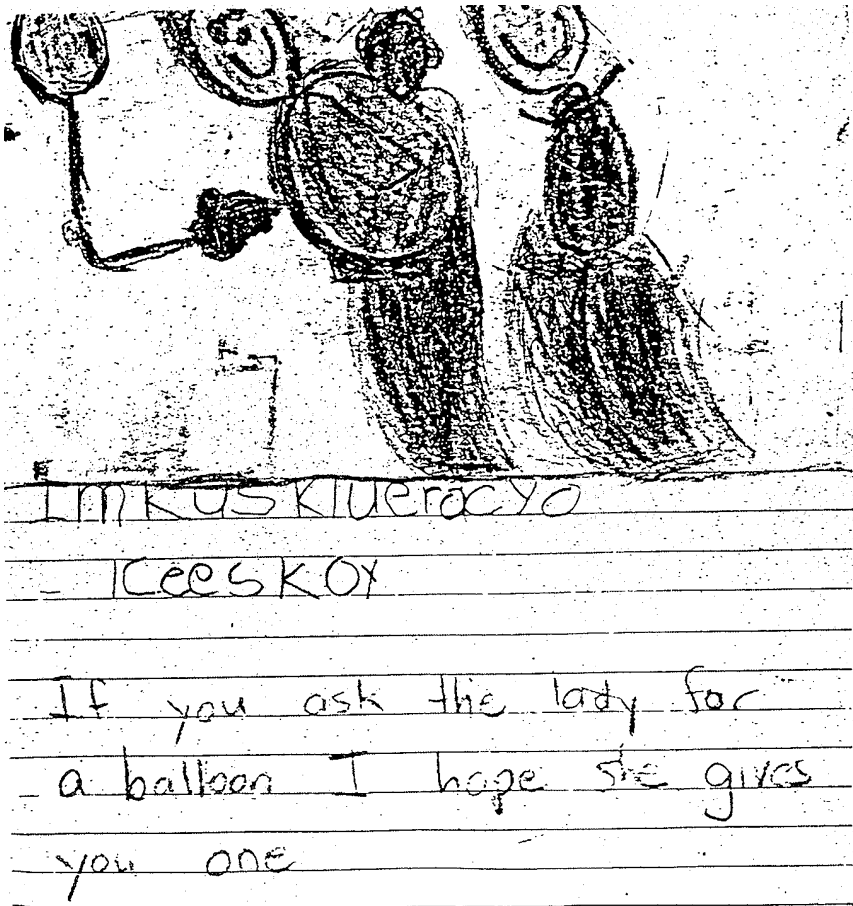 ImKusKluerocYo
Kees K OY
If you ask the lady for
a balloon I hope she gives
you one